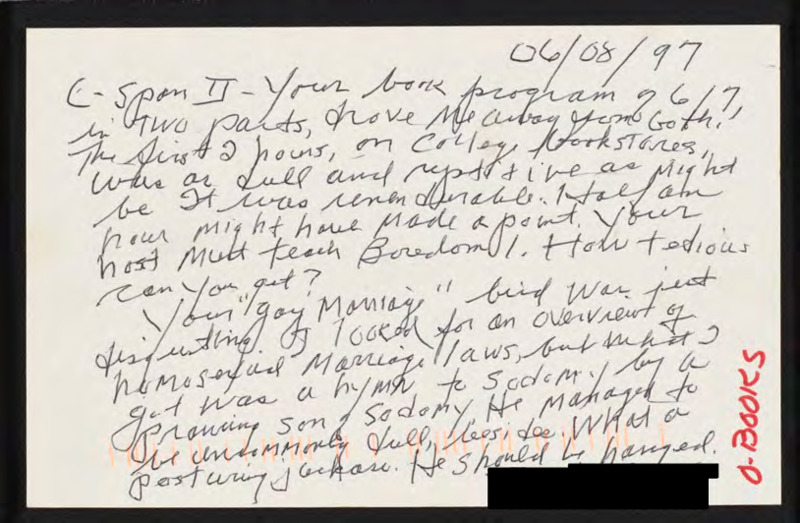 06/08/97
C-Span II - Your book program of 6/7,
in two parts, drove me away from both.
The first 2 hours, on College bookstores,
was as dull and reptitive as might
be. It was unendurable. Half an
hour might have made a point. Your
host must teach Boredom 1. How tedious
can you get?
Your "gay Marriage" bird was just
disgusting. I looked for an overview of
homosexual marriage laws, but what I
got was a hymn to Sodomy by a
son of Sodomy. He managed to
be uncommonly dull, beside. What a
posturing jackass. He should be hanged.
O-BOOKS